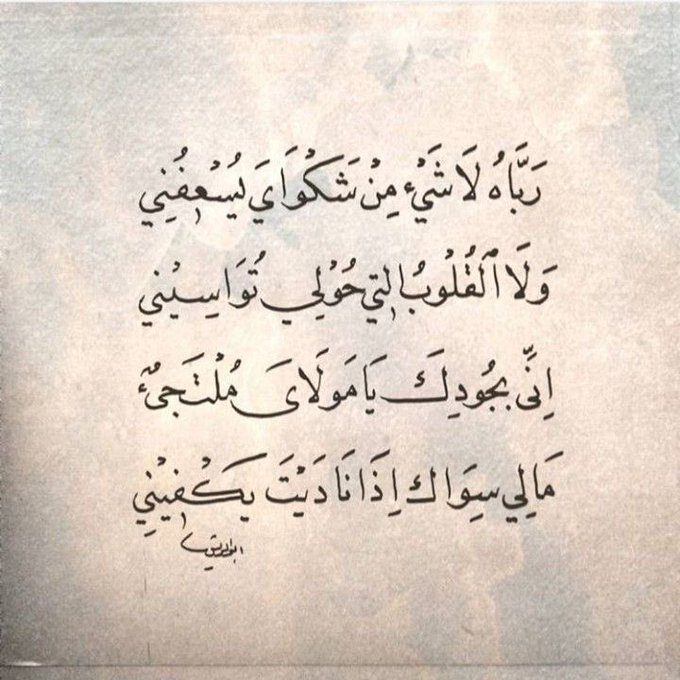 رَبَّاهُ لَا شَيْءَ مِنْ شَكْوَايَ يُسْعِفُنِي
وَلَا ٱلْقُلُوبُ التِي حُوْلِي تُوَاسِيْنِي
اِنِّى بِجُودِكَ يَا مَولَاىَ مُلْتَجِىٌٔ
مَالِي سِوَاكَ اِذَا نَادَيْتَ يَكْفِيْنِي